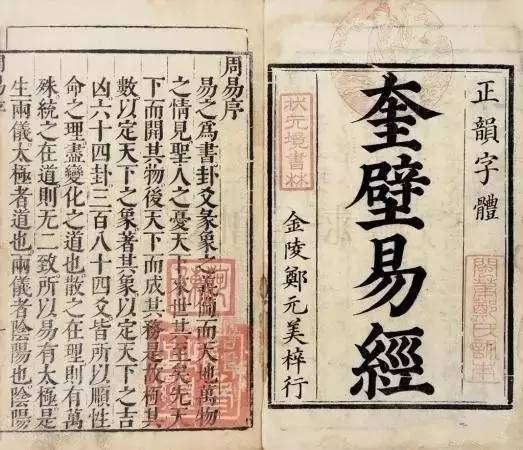 正韻字體
奎壁易經
狀元境書林
金陵鄭元美梓行
周易序
易之爲書卦爻彖象之義備而天地萬物
之情見聖人之憂天下來世其至矣先天
下而開其物後天下而成其務是故極其
數以定天下之象著其象以定天下之吉
凶六十四卦三百八十四爻皆所以順性
命之理盡變化之道也散之在理則有萬
殊統之在道則无二致所以易有太極是
生兩儀太極者道也兩儀者陰陽也陰陽
周易序